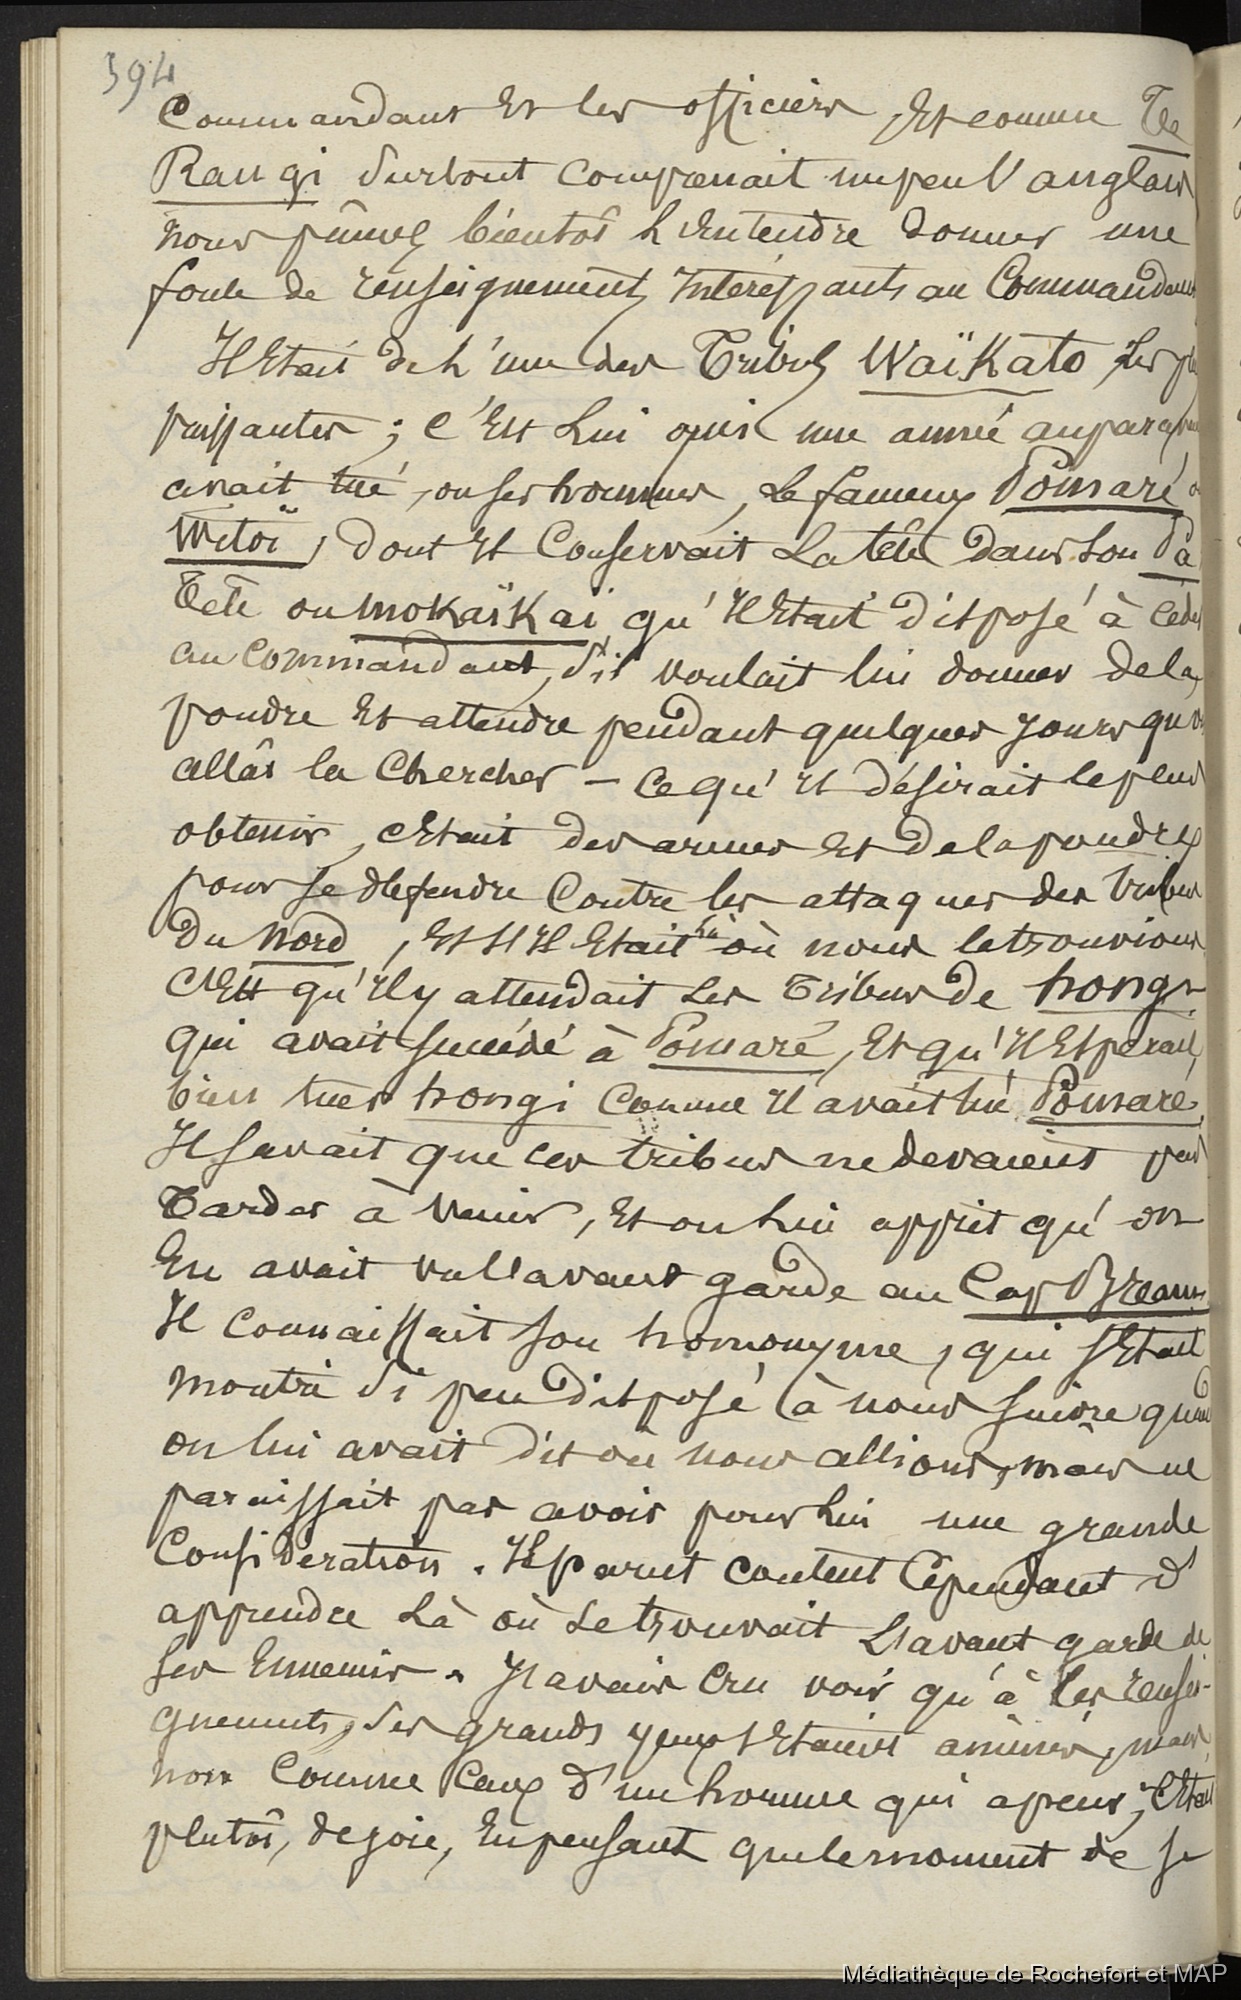 394
Commandant Et les officiers, Et comme Te
Rangi surtout comprenait un peu l'anglais
nous pûmes bientôt L'Entendre donner une
foule de renseignements Interessants au Commandant
Il Etait de L'une des Tribus WaïKato Les plus
puissantes ; C'Est Lui qui une année auparavant
avait tué, ou ses hommes, Le fameux Pomaré ou
Witoï, dont Il Conservait La tête dans son Pa
Tête ou moKaïKai qu'Il Etait disposé à Céder
au Commandant, s'il voulait lui donner de la
poudre Et attendre pendant quelques Jours qu'on
allât la Chercher – Ce qu'Il désirait le plus
obtenir, c'Etait des armes Et de la poudre
pour se deffendre Contre les attaques des tribus
du Nord, Et s'Il Etait là où nous le trouvions
C'Est qu'Il y attendait Les Tribus de hongi
qui avait succédé à Pomaré, Et qu'Il Esperait
bien tuer hongi Comme Il avait tué Pomaré.
Il savait que ces tribus ne devaient pas
Tarder à Venir, Et on Lui apprit qu'on
En avait vu l'avant garde au Cap Bream
Il Connaissait son homonyme, qui s'Etait
montré si peu disposé à nous suivre quand
on lui avait dit où nous allions, mais ne
paraissait pas avoir pour Lui une grande
Consideration. Il parut content Cependant d'
apprendre Là où se trouvait L'avant garde de
ses Ennemis. J'avais Cru voir qu'à ces rensei-
gnements, ses grands yeux s'Etaient animés, mais
non Comme Ceux d'un homme qui a peur ; C'Etait
plutôt, de joie, En pensant que le moment de se
Médiathèque de Rochefort et MAP